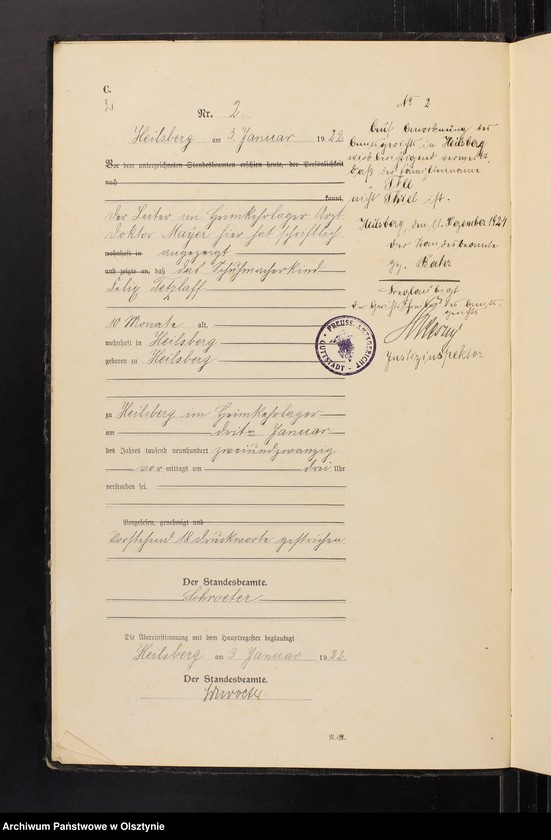 C.
2
Nr. 2.
Heilsberg am 3. Januar 1922.
Vor dem unterzeichneten Standesbeamten erschien heute, der Persönlichkeit
nach
kannt,
Der Leiter im Heimkehrlager Arzt
Doktor Mayer hier hat schriftlich
wohnhaft in angezeigt
und zeigte an, daß das Schuhmacherkind
Felix Tetzlaff
10 Monate alt,
wohnhaft in Heilsberg
geboren zu Heilsberg
zu Heilsberg im Heimkehrlager
am Januar
des Jahres tausend neunhundert zweiundzwanzig
vor mittags um drei Uhr
verstorben sei.
Vorgelesen, genehmigt und
Vorstehend 18 Druckworte gestrichen
Der Standesbeamte.
Schroeter
Die Übereinstimmung mit dem Hauptregister beglaubigt
Heilsberg am 3 Januar 1922.
Der Standesbeamte.
Schroeter
R.-R.
No 2
Auf Anordnung des
Amtsgerichts in Heilsberg
wird berichtigend vermerkt,
daß der Familienname
nicht ist.
Heilsberg, den 11. Dezember 1924
Der Standesbeamte
gez.
Beglaubigt
des Amts-
gerichts
Justizinspektor
PREUSS. AMTSGERICHT
GUTTSTADT
Archiwum Państwowe w Olsztynie